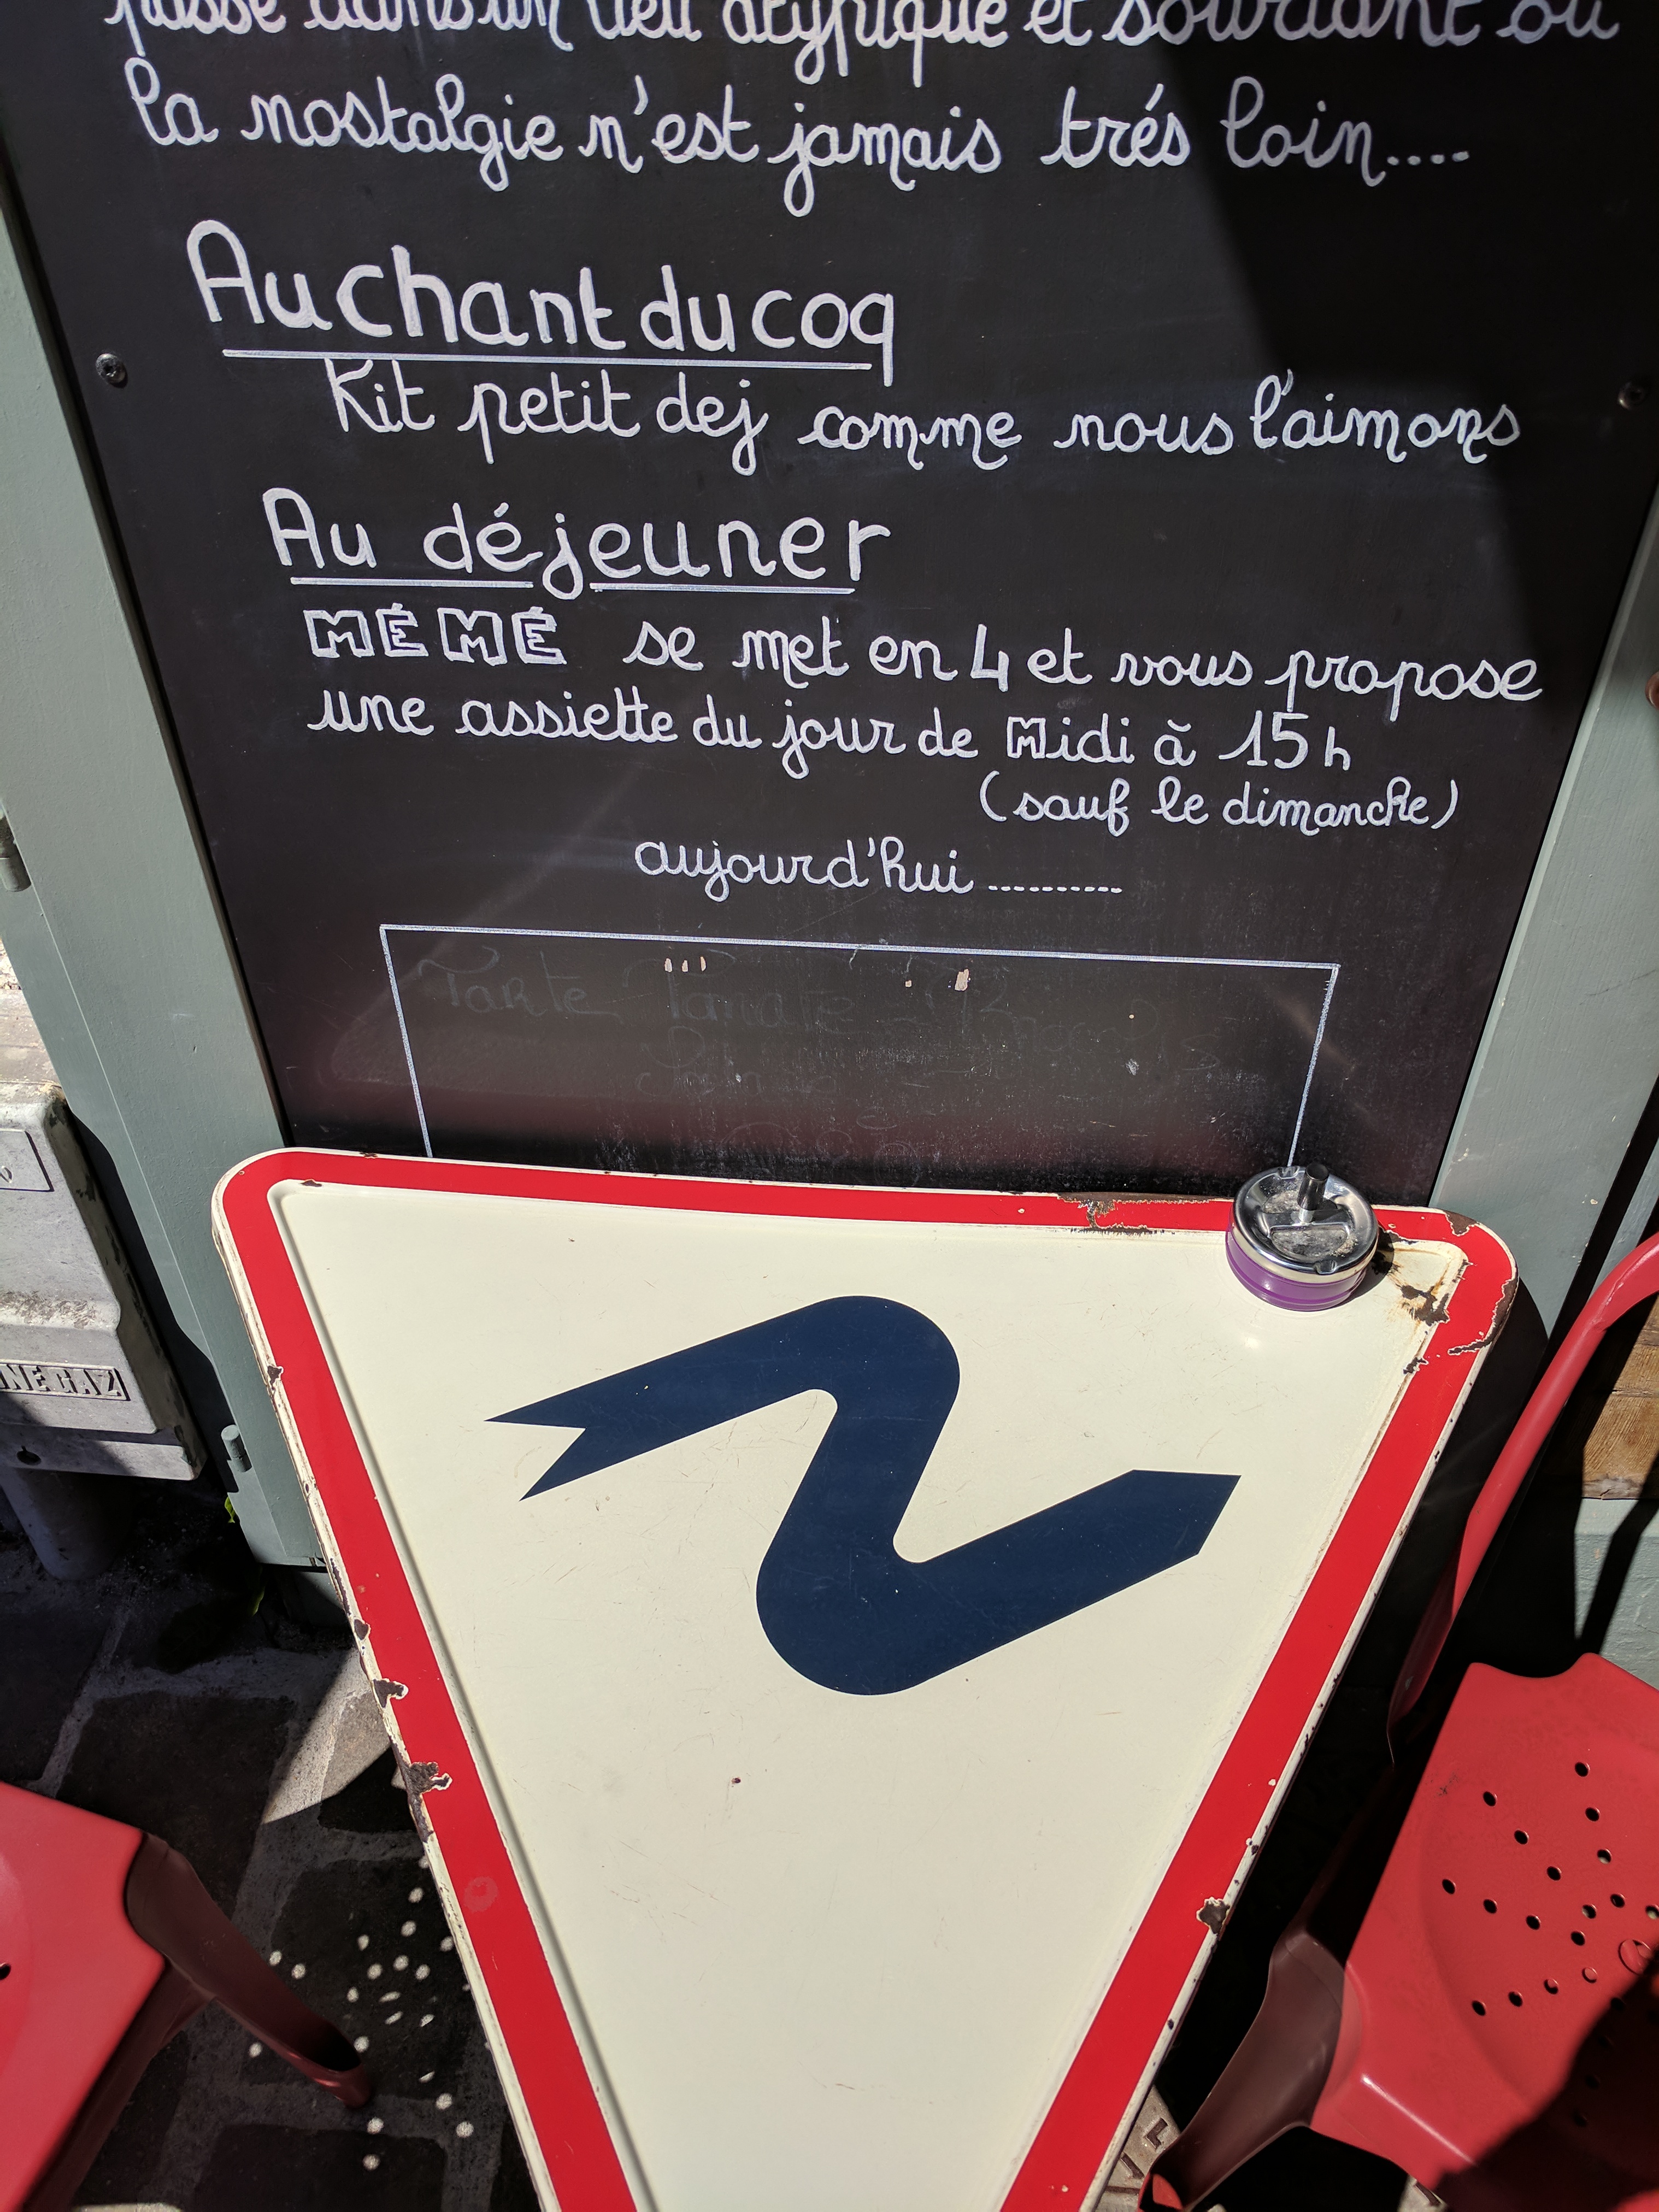 passe dans un lieu atypique et souriant où
la nostalgie n'est jamais trés loin....
Au chant du coq
Kit petit dej comme nous l'aimons
Au déjeuner
MÉMÉ se met en 4 et vous propose
une assiette du jour de Midi à 15h
(sauf le dimanche)
aujourd'hui ...........
Tarte Tomate
NE GAZ